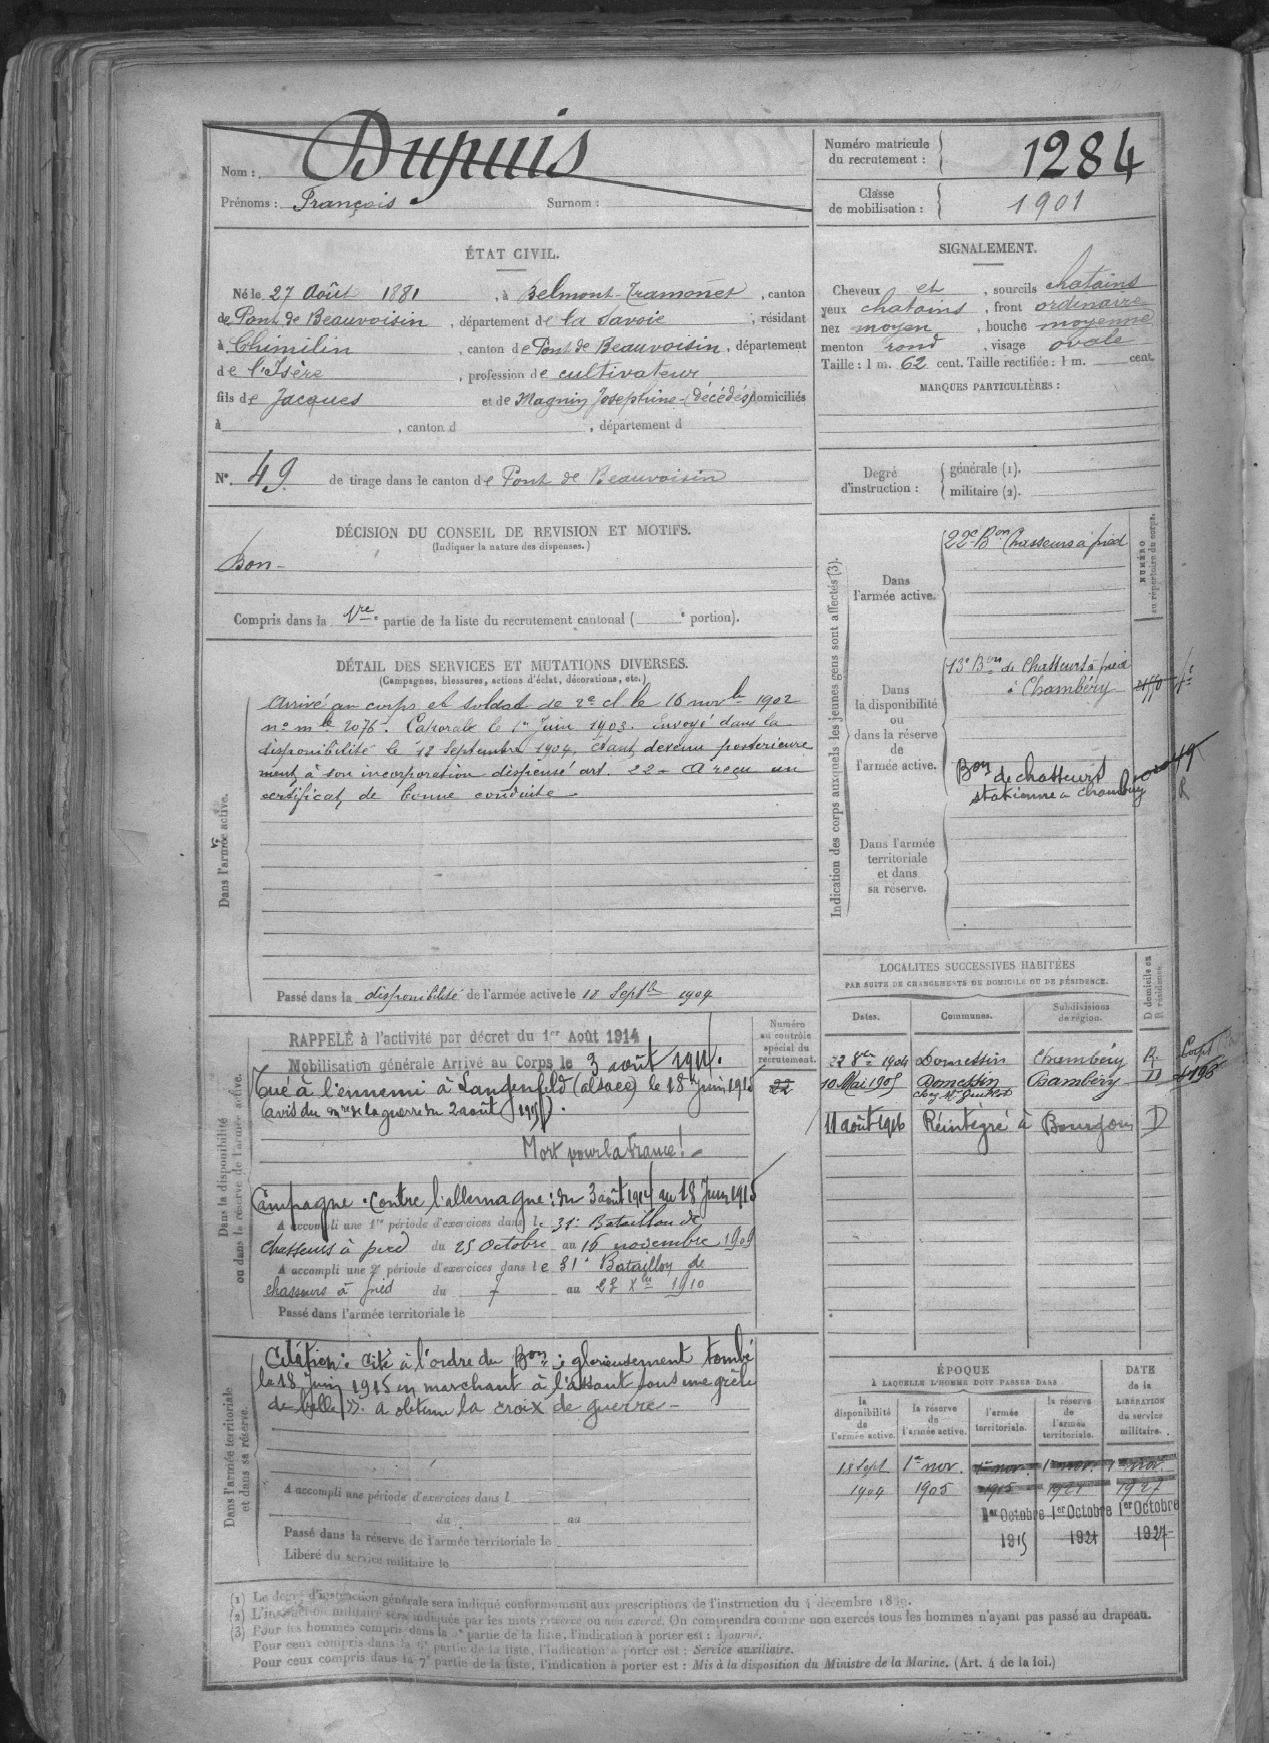 Nom : Dupuis
Prénoms : François Surnom :
Numéro matricule du recrutement : 1284
Classe de mobilisation : 1901
ÉTAT CIVIL.
Né le 27 Août 1881, à Belmont-Tramonet, canton
de Pont de Beauvoisin, département de la Savoie, résidant
à Chimilin, canton de Pont de Beauvoisin, département
de l'Isère, profession de cultivateur
fils de Jacques et de Magnin Josephine - (décédés) domiciliés
à , canton d , département d
N° 49 de tirage dans le canton de Pont de Beauvoisin
SIGNALEMENT.
Cheveux et , sourcils chatains
yeux chatains , front ordinaire
nez moyen , bouche moyenne
menton rond , visage ovale
Taille : 1 m. 62 cent. Taille rectifiée : 1 m. cent.
MARQUES PARTICULIÈRES :
Degré d'instruction : générale (1).
militaire (2).
DÉCISION DU CONSEIL DE REVISION ET MOTIFS.
(Indiquer la nature des dispenses.)
Bon -
Compris dans la 1re partie de la liste du recrutement cantonal ( e portion).
DÉTAIL DES SERVICES ET MUTATIONS DIVERSES.
(Campagnes, blessures, actions d'éclat, décorations, etc.)
Dans l'armée active.
Arrivé au corps et soldat de 2e cl le 16 novbre 1902
n° mle 2076. Caporal le 1er Juin 1903. Envoyé dans la
disponibilité le 18 Septembre 1904, étant devenu posterieure
ment à son incorporation dispensé art. 22 - A reçu un
certificat de bonne conduite -
Passé dans la disponibilité de l'armée active le 18 Septbre 1904
Indication des corps auxquels les jeunes gens sont affectés (3).
NUMÉRO au répertoire du corps.
Dans l'armée active.
22e Bon Chasseurs à pied
Dans la disponibilité ou dans la réserve de l'armée active.
13e Bon de Chasseurs à pied
à Chambéry
Bon de chasseurs
stationné à Chambéry
R
Dans l'armée territoriale et dans sa réserve.
Dans la disponibilité ou dans la réserve de l'armée active.
Numéro au contrôle spécial du recrutement.
22
RAPPELÉ à l'activité par décret du 1er Août 1914
Mobilisation générale Arrivé au Corps le 3 août 1914.
Tué à l'ennemi à Langenfeld (alsace) le 18 juin 1915
(avis du mre de la guerre du 2 août 1915).
Mort pour la France ! -
Campagne contre l'allemagne : du 3 août 1914 au 18 Juin 1915
A accompli une 1re période d'exercices dans le 31e Bataillon de
chasseurs à pied du 25 Octobre au 16 novembre 1909
A accompli une 2 période d'exercices dans le 31e Bataillon de
chasseurs à pied du 7 au 23 Xbre 1910
Passé dans l'armée territoriale le
LOCALITÉS SUCCESSIVES HABITÉES
PAR SUITE DE CHANGEMENTS DE DOMICILE OU DE RÉSIDENCE.
Dates. Communes. Subdivisions de région. D domicile ou R résidence.
22 8bre 1904 Domessin Chambéry R.
10 Mai 1905 Domessin Chambéry D
11 août 1916 Réintégré à Bourgoin D
Dans l'armée territoriale et dans sa réserve.
Citation : cité à l'ordre du Bon : glorieusement tombé
le 18 Juin 1915 en marchant à l'assaut sous une grêle
de balles ». a obtenu la croix de guerre -
A accompli une période d'exercices dans l
du au
Passé dans la réserve de l'armée territoriale le
Libéré du service militaire le
ÉPOQUE
À LAQUELLE L'HOMME DOIT PASSER DANS
DATE de la LIBÉRATION du service militaire.
la disponibilité de l'armée active. la réserve de l'armée active. l'armée territoriale. la réserve de l'armée territoriale.
18 Sept 1er nov. 1er nov. 1er nov. 1er nov.
1904 1905 1915 1921 1927
1er Octobre 1er Octobre 1er Octobre
1915 1921 1927
(1) Le degré d'instruction générale sera indiqué conformément aux prescriptions de l'instruction du 4 décembre 1889.
(2) L'instruction militaire sera indiquée par les mots exercé ou non exercé. On comprendra comme non exercés tous les hommes n'ayant pas passé au drapeau.
(3) Pour les hommes compris dans la 2e partie de la liste, l'indication à porter est : Ajourné.
Pour ceux compris dans la partie de la liste, l'indication à porter est : Service auxiliaire.
Pour ceux compris dans la 7e partie de la liste, l'indication à porter est : Mis à la disposition du Ministre de la Marine. (Art. 4 de la loi.)